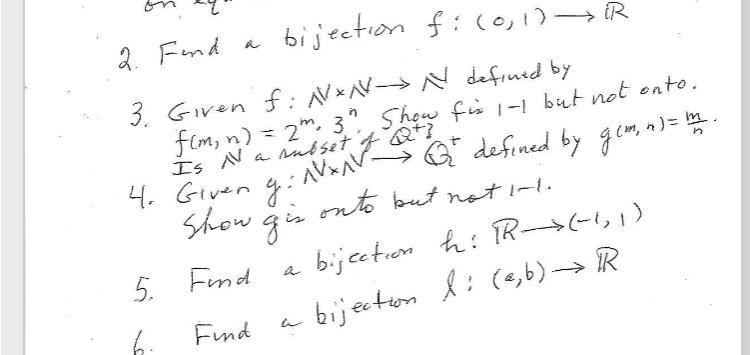 on
2. Find a bijection f: (0,1) → ℝ
3. Given f: N×N → N defined by
f(m,n) = 2^m. 3^n. Show f is 1-1 but not onto.
Is N a subset of Q^+?
4. Given g: N×N → Q^+ defined by g(m,n) = m/n.
Show g is onto but not 1-1.
5. Find a bijection h: ℝ → (-1,1)
6. Find a bijection l: (a,b) → ℝ